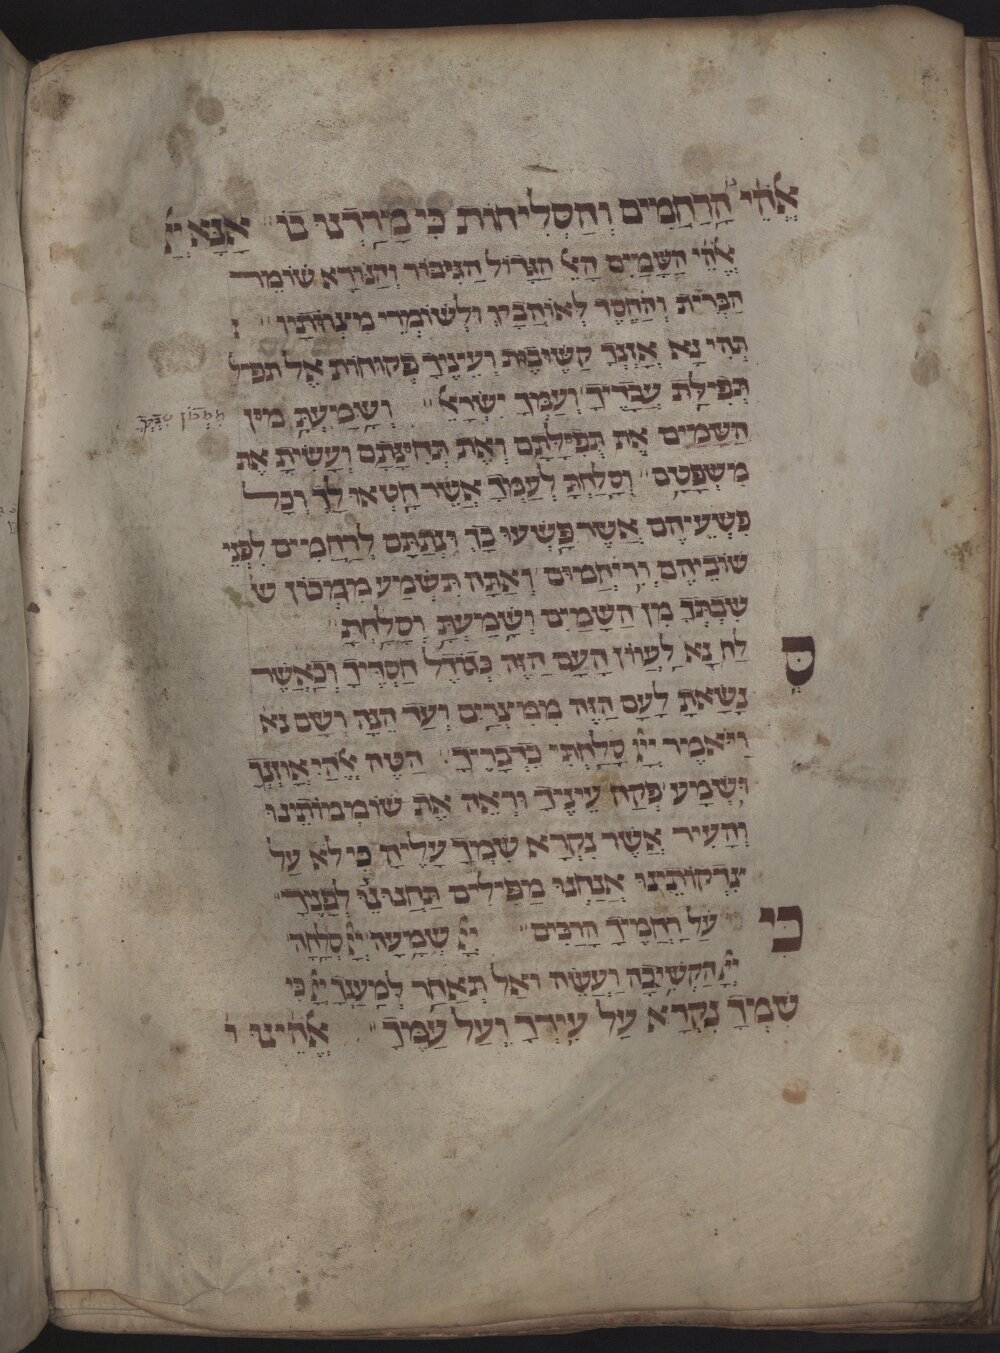 אֱלֹהֵי הָרַחֲמִים וְהַסְלִיחוֹת כִּי מָרַדְנוּ בוֹ׃ אָנָּא יְיָ
אֱלֹהֵי הַשָּׁמַיִם הָאֵל הַגָּדוֹל הַגִּיבּוֹר וְהַנּוֹרָא שׁוֹמֵר
הַבְּרִית וְהַחֶסֶד לְאוֹהֲבָיו וּלְשׁוֹמְרֵי מִצְוֹתָיו׃
תְּהִי נָא אָזְנְךָ קַשּׁוּבֹת וְעֵינֶיךָ פְקוּחוֹת אֶל תפיל
תְּפִילַת עֲבָדֶיךָ וְעַמְּךָ יִשְׂרָאֵל׃ וְשָׁמַעְתָּ מִין
הַשָּׁמַיִם אֶת תְּפִילָּתָם וְאֶת תְּחִינָּתָם וְעָשִׂיתָ אֶת
מִשְׁפָּטָם׃ וְסָלַחְתָּ לְעַמְּךָ אֲשֶׁר חָטְאוּ לָךְ וְכָל
פִּשְׁעֵיהֶם אֲשֶׁר פָּשְׁעוּ בָךְ וּנְתַתָּם לְרַחֲמִים לִפְנֵי
שׁוֹבֵיהֶם וְרִיחֲמוּם׃ וְאַתָּה תִּשְׁמַע מִמְּכוֹן ש
שִׁבְתְּךָ מִן הַשָּׁמַיִם וְשָׁמַעְתָּ וְסָלָחְתָּ׃
סְלַח נָא לַעֲוֹן הָעָם הַזֶּה כְּגוֹדֶל חַסְדֶּיךָ וְכַאֲשֶׁר
נָשָׂאתָ לָעָם הַזֶּה מִמִּצְרַיִם וְעַד הֵנָּה וְשָׁם נא
וַיֹּאמֶר יְיָ סָלַחְתִּי כִּדְבָרֶיךָ׃ הַטֵּה אֱלֹהַי אָזְנְךָ
וּשְׁמָע פְּקַח עֵינֶיךָ וּרְאֵה אֶת שׁוֹמְמוֹתֵינוּ
וְהָעִיר אֲשֶׁר נִקְרָא שִׁמְךָ עָלֶיהָ כִּי לֹא עַל
צִדְקוֹתֵינוּ אֲנַחְנוּ מַפִּילִים תַּחֲנוּנֵינוּ לְפָנֶיךָ׃
כִּי עַל רַחֲמֶיךָ הָרַבִּים׃ יְיָ שְׁמָעָה יְיָ סְלָחָה
יְיָ הַקְשִׁיבָה וַעֲשֵׂה וְאַל תְּאַחַר לְמַעֲנְךָ יְיָ כִּי
שִׁמְךָ נִקְרָא עַל עִירְךָ וְעַל עַמֶּךָ׃ אֱלֹהֵינוּ ו